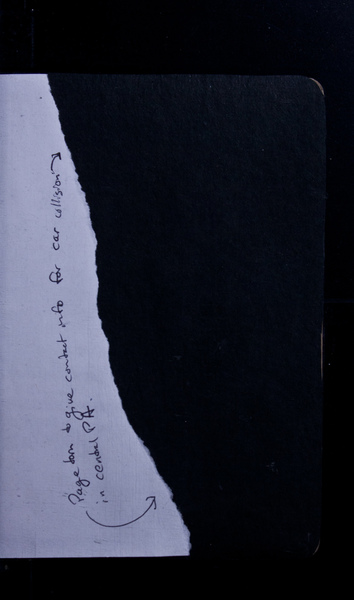 Page torn to give contact info for car collision
in central PA.